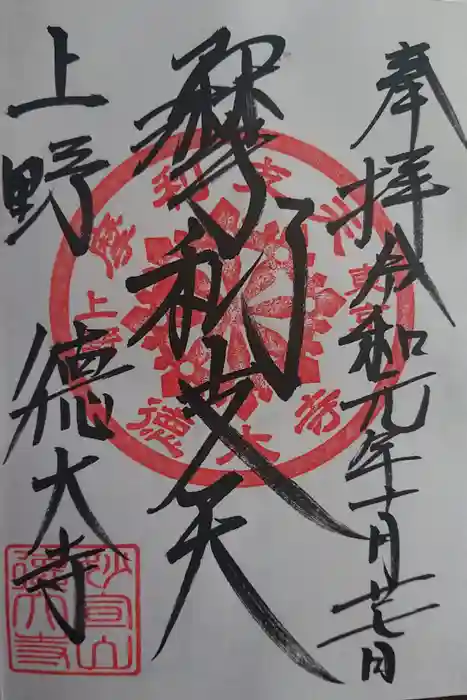 奉拝 令和元年十月廿七日
摩利支天
上野 徳大寺
摩利支天
上野
德大寺
妙宣山
德大寺